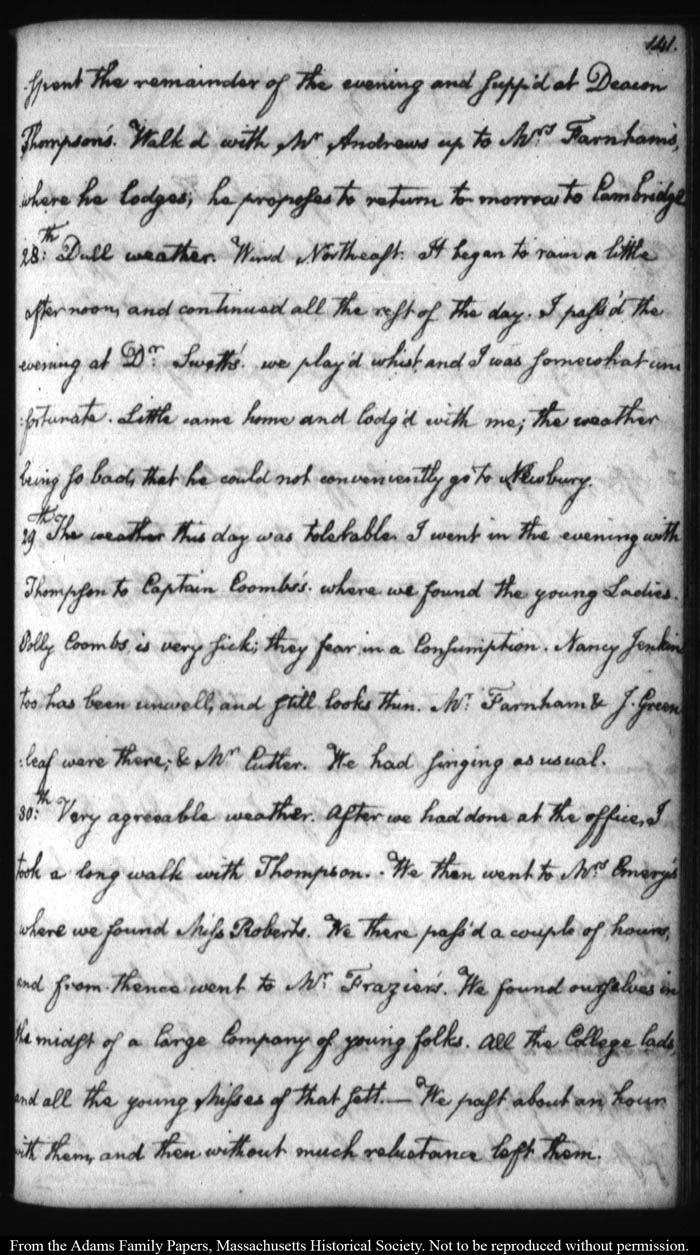 141.
spent the remainder of the evening and supp'd at Deacon
Thompson's. Walk'd with Mr Andrews up to Mrs Farnham's,
where he lodges; he proposes to return to-morrow to Cambridge
28:th Dull weather. Wind Northeast. It began to rain a little
after noon, and continued all the rest of the day. I pass'd the
evening at Dr: Swett's. we play'd whist and I was somewhat un
:fortunate. Little came home and lodg'd with me; the weather
being so bad, that he could not conveniently go to Newbury.
29th The weather this day was tolerable. I went in the evening with
Thompson to Captain Coombs's. where we found the young Ladies.
Polly Coombs is very sick; they fear in a Consumption. Nancy Jenkin
too has been unwell, and still looks thin. Mr: Farnham & J. Green
:leaf were there; & Mr Cutler. We had singing as usual.
30:th Very agreeable weather. After we had done at the office, I
took a long walk with Thompson. We then went to Mrs Emery's
where we found Miss Roberts. We there pass'd a couple of hours,
and from thence went to Mr: Frazier's. We found ourselves in
the midst of a large Company of young folks. All the College lads,
and all the young Misses of that sett.— We past about an hour
with them, and then without much reluctance left them.
From the Adams Family Papers, Massachusetts Historical Society. Not to be reproduced without permission.